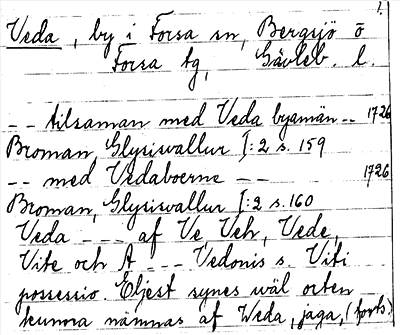 1.
Veda, by i Forsa sn, Bergsjö o
Forsa tg, Gävleb. l.
- - tilsaman med Veda byamän - - 1726
Broman, Glysisvallur I:2 s. 159
- - med Vedaboerne - - 1726
Broman, Glysisvallur I:2 s. 160
Veda - - - af Ve, Veh, Vede,
Vite och A - - - Vedonis s. Viti
possessio. Eljest synes wäl orten
kunna nämnas af Weda, jaga, (forts.)